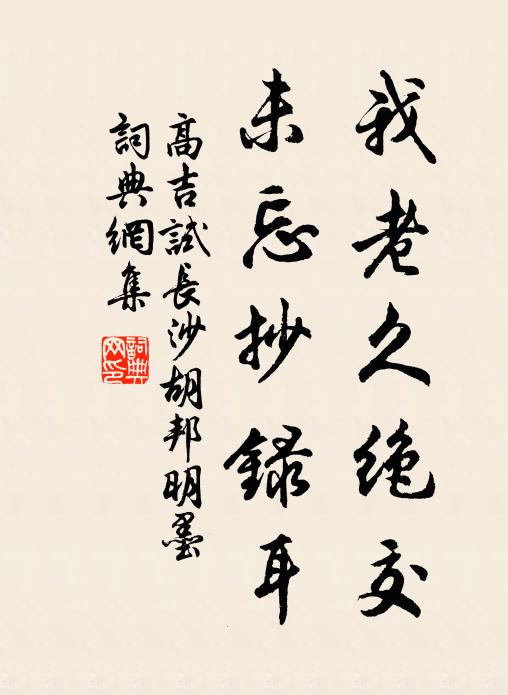 我老久絶交
未忘抄録耳
高吉試長沙胡邦明墨
詞典網集
詞典網印